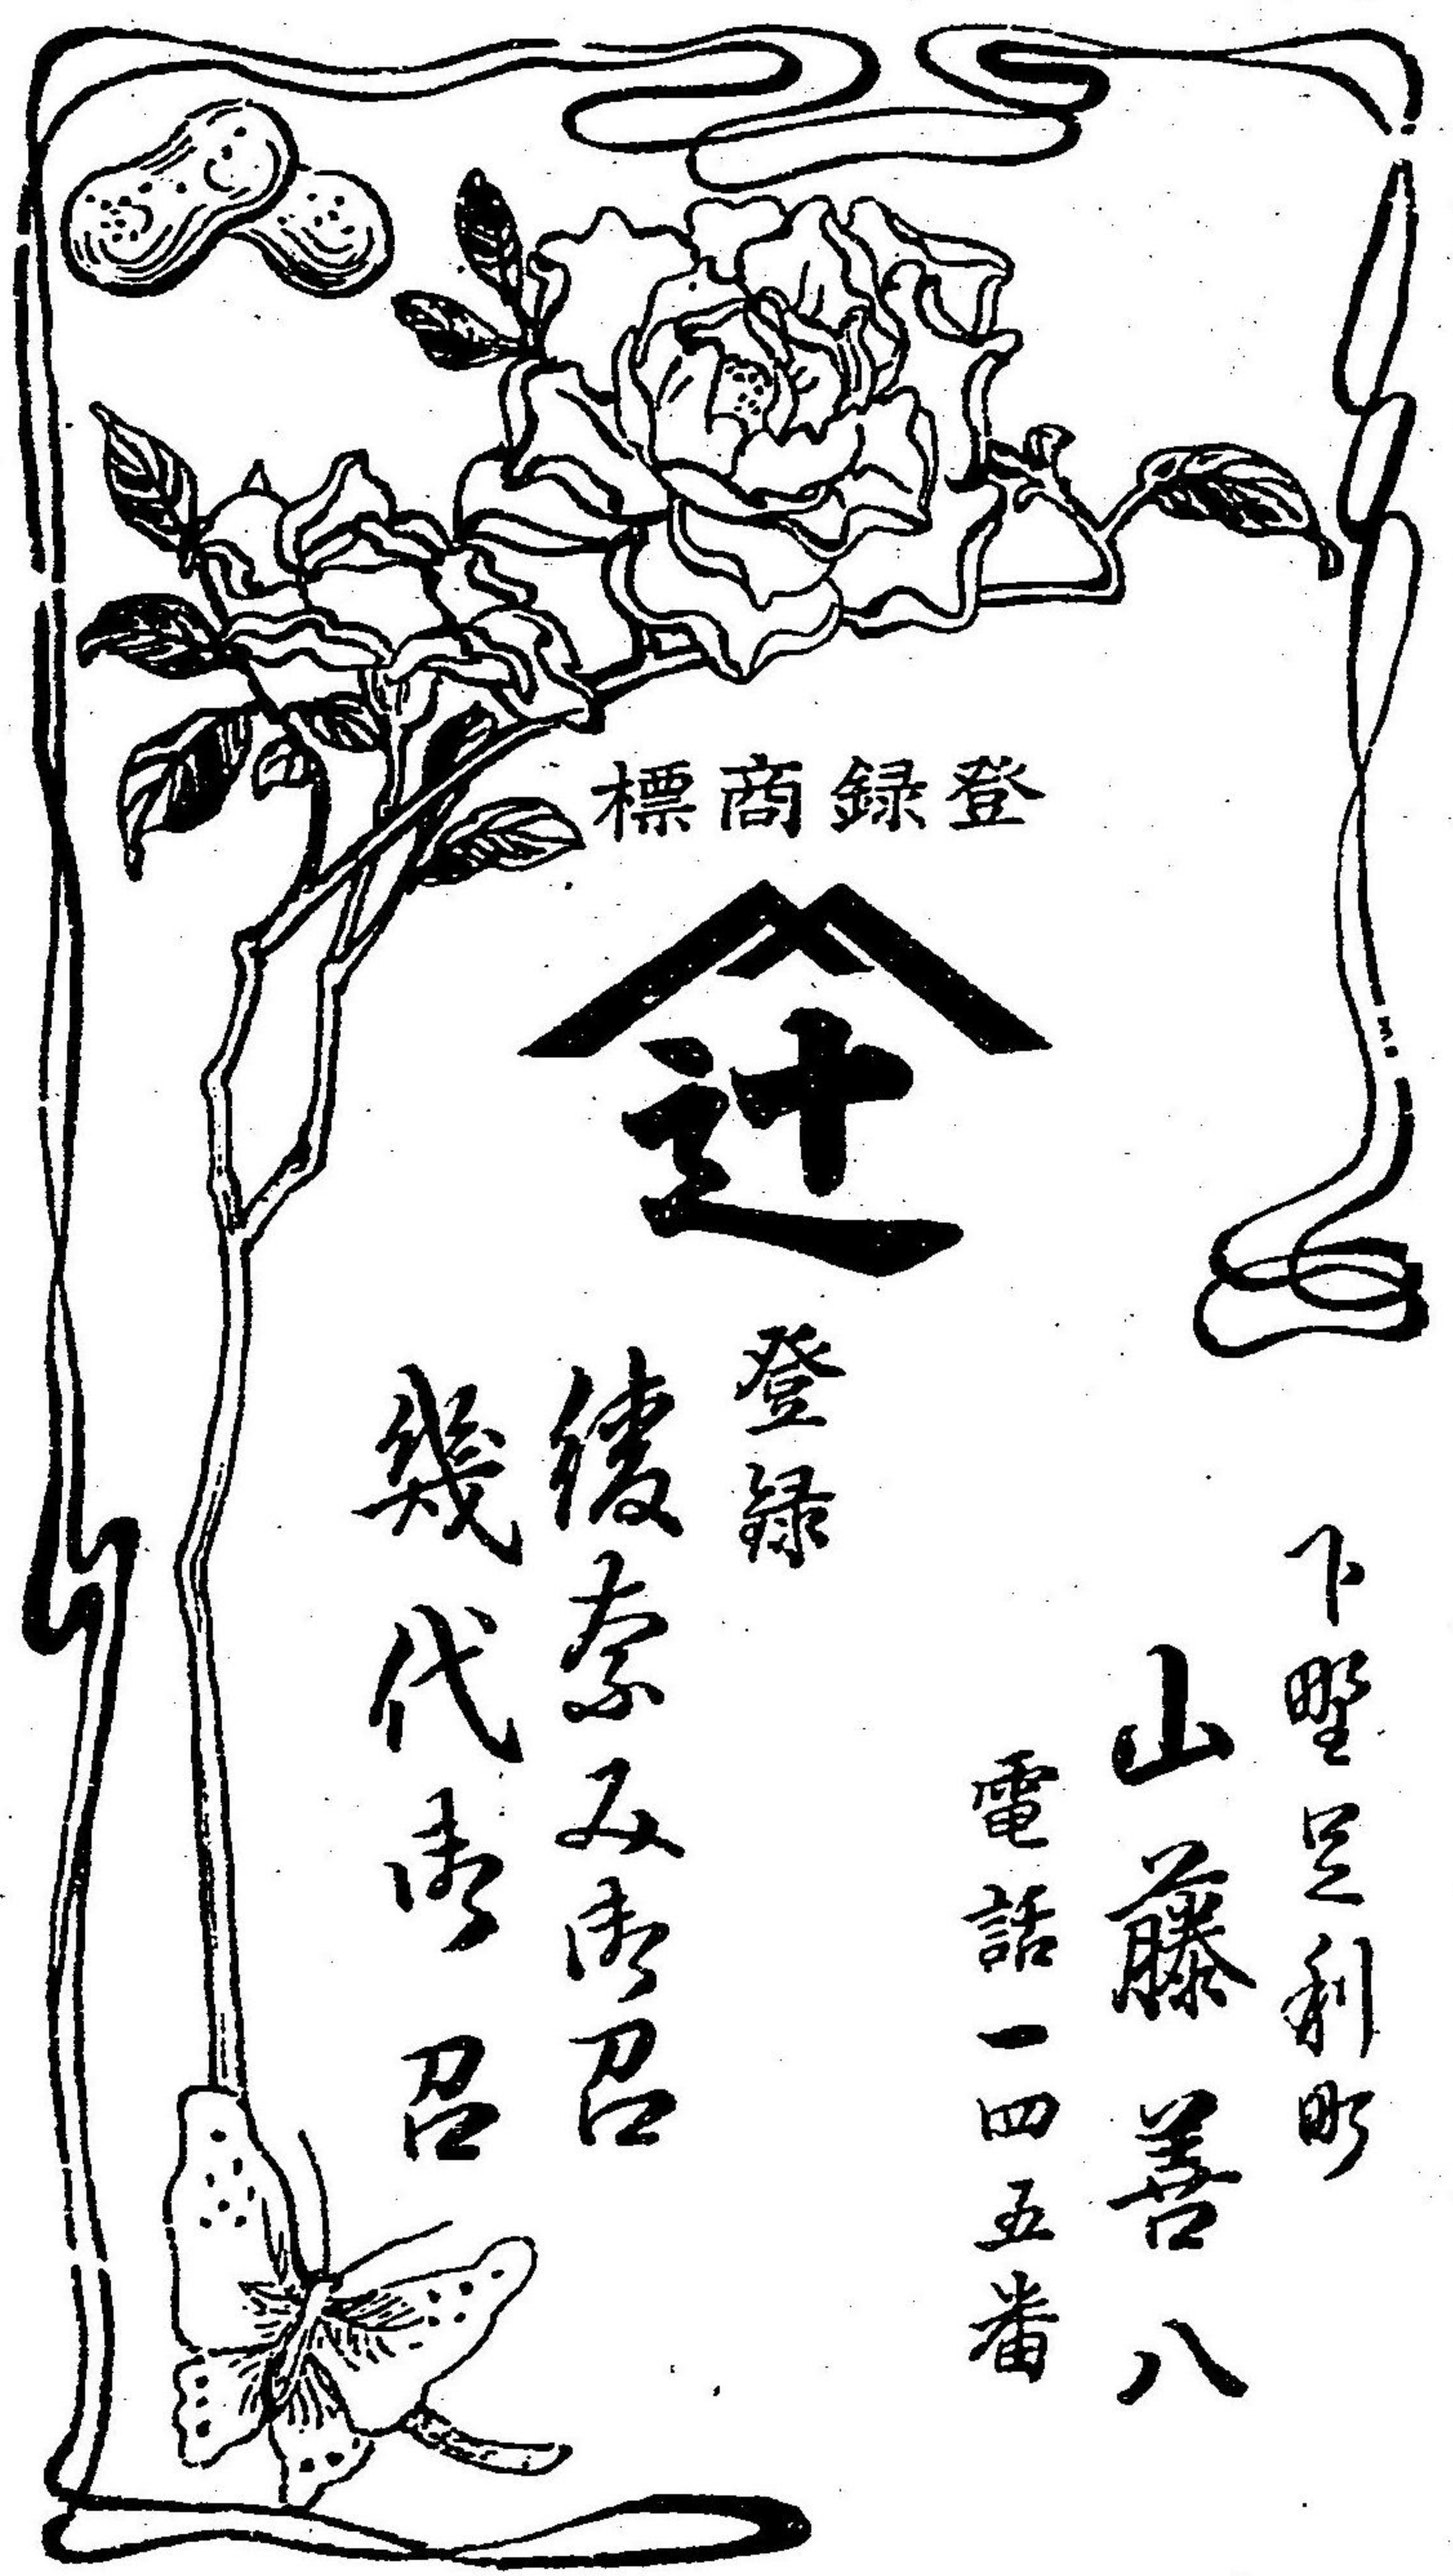 登録商標
辻
下野足利町
山藤善八
電話一四五番
登録
綾奈み御召
幾代御召